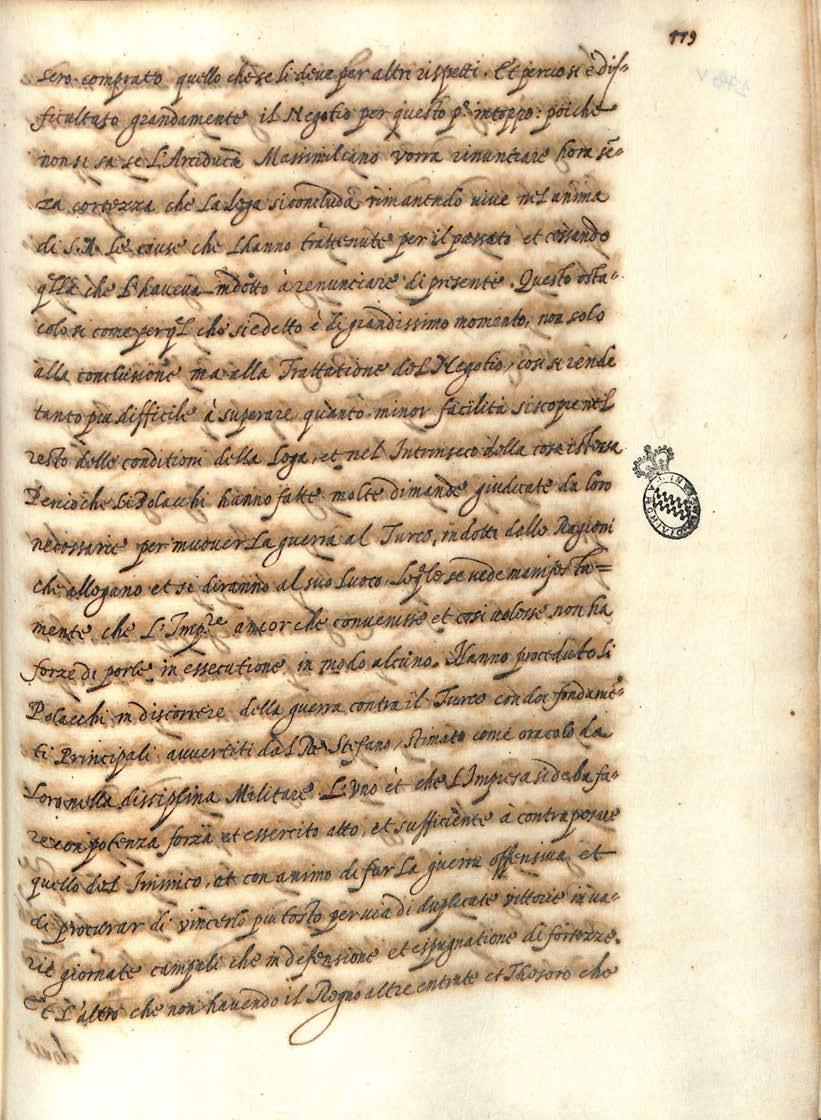 179
sero comprato quello che se li deve per altri rispetti. Et perciò si è dif-
ficultato grandemente il Negotio per questo p.º intoppo: poiche
non si sa se L'Arciduca Massimiliano vorra rinuntiare hora sē-
za certezza che La Lega si concluda rimanendo vive nel anima
di S.A. Le cause che L'hanno trattenute per il passato et cessando
qlla che L'haveva indotto à renunciare di presente. Questo osta-
colo si come per ql che si è detto è di grandissimo momento, non solo
alla conclusione ma alla Trattatione del Negotio, cosi si rende
tanto piu difficile à superare, quanto minor facilità si scopre nel
resto delle conditioni della Lega, et nel Intrinseco della cosa istessa
Percioche Li Polacchi hanno fatte molte dimande giudicate da loro
necessarie per muover La guerra al Turco, indotti dalle Ragioni
che allegano et si diranno al suo Luoco, Leqle se vede manifesta=
mente che L'Imp.re ancor che convenisse et cosi volesse non ha
forze di porle in essecutione in modo alcuno. Hanno proceduto li
Polacchi in discorrere della guerra contra il Turco con doi fondamē-
ti Principali avvertiti dal Re Stefano, stimato come oracolo da
Loro nella dissiplina Militare. L'uno è che L'Impresa si debba fa-
re con potenza forza et essercito atto, et sufficiente à contraporre
quello del Inimico, et con animo di far La guerra offensiva et
di procurar di vincerlo piu tosto per via di duplicate vittorie in va-
rie giornate campali che in defensione et espugnatione di fortezze.
Et L'altro che non havendo il Regno altre entrate et Thesoro che